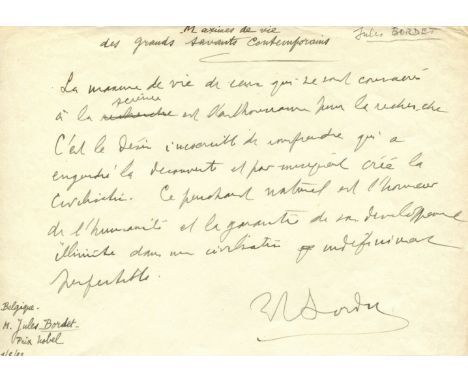 Maximes de vie
des Grands Savants Contemporains
Jules BORDET
La maxime de vie de ceux qui se sont consacrés
science
à la recherche est l'enthousiasme pour la recherche
C'est le désir incoercible de comprendre qui a
engendré la découverte et par conséquent créé la
Civilisation. Ce penchant naturel est l'honneur
de l'humanité et la garantie de son développement
illimité dans une civilisation indéfiniment
perfectible.
Bordet
Belgique.
M. Jules Bordet.
Prix Nobel